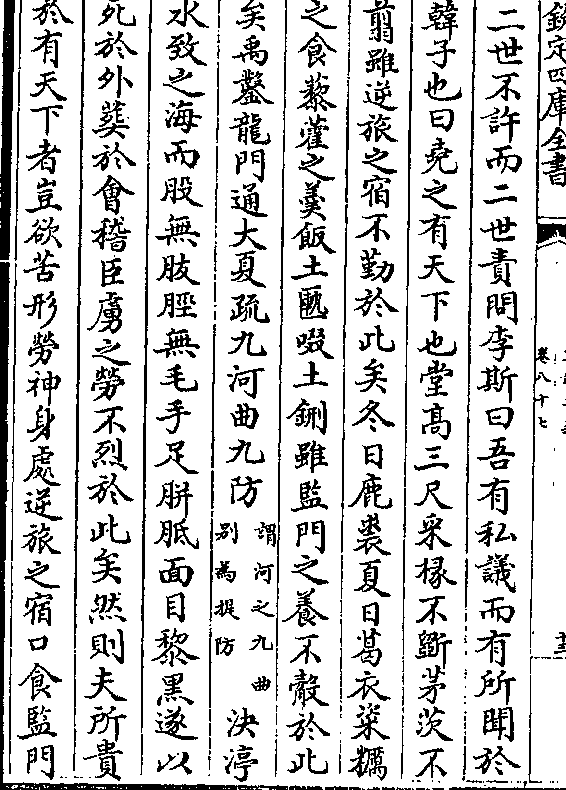 欽定四庫全書
卷八十七
二世不許而二世責問李斯曰吾有私議而有所聞於
韓子也曰堯之有天下也堂髙三尺采椽不斲茅茨不
翦雖逆旅之宿不勤於此矣冬日鹿裘夏日葛衣粢糲
之食藜藿之羮飯土匭啜土鉶雖監門之養不觳於此
矣禹鑿龍門通大夏疏九河曲九防
謂河之九曲
别為提防
決渟
水致之海而股無胈脛無毛手足胼胝面目黎黑遂以
死於外葬於會稽臣虜之勞不烈於此矣然則夫所貴
於有天下者豈欲苦形勞神身處逆旅之宿口食監門